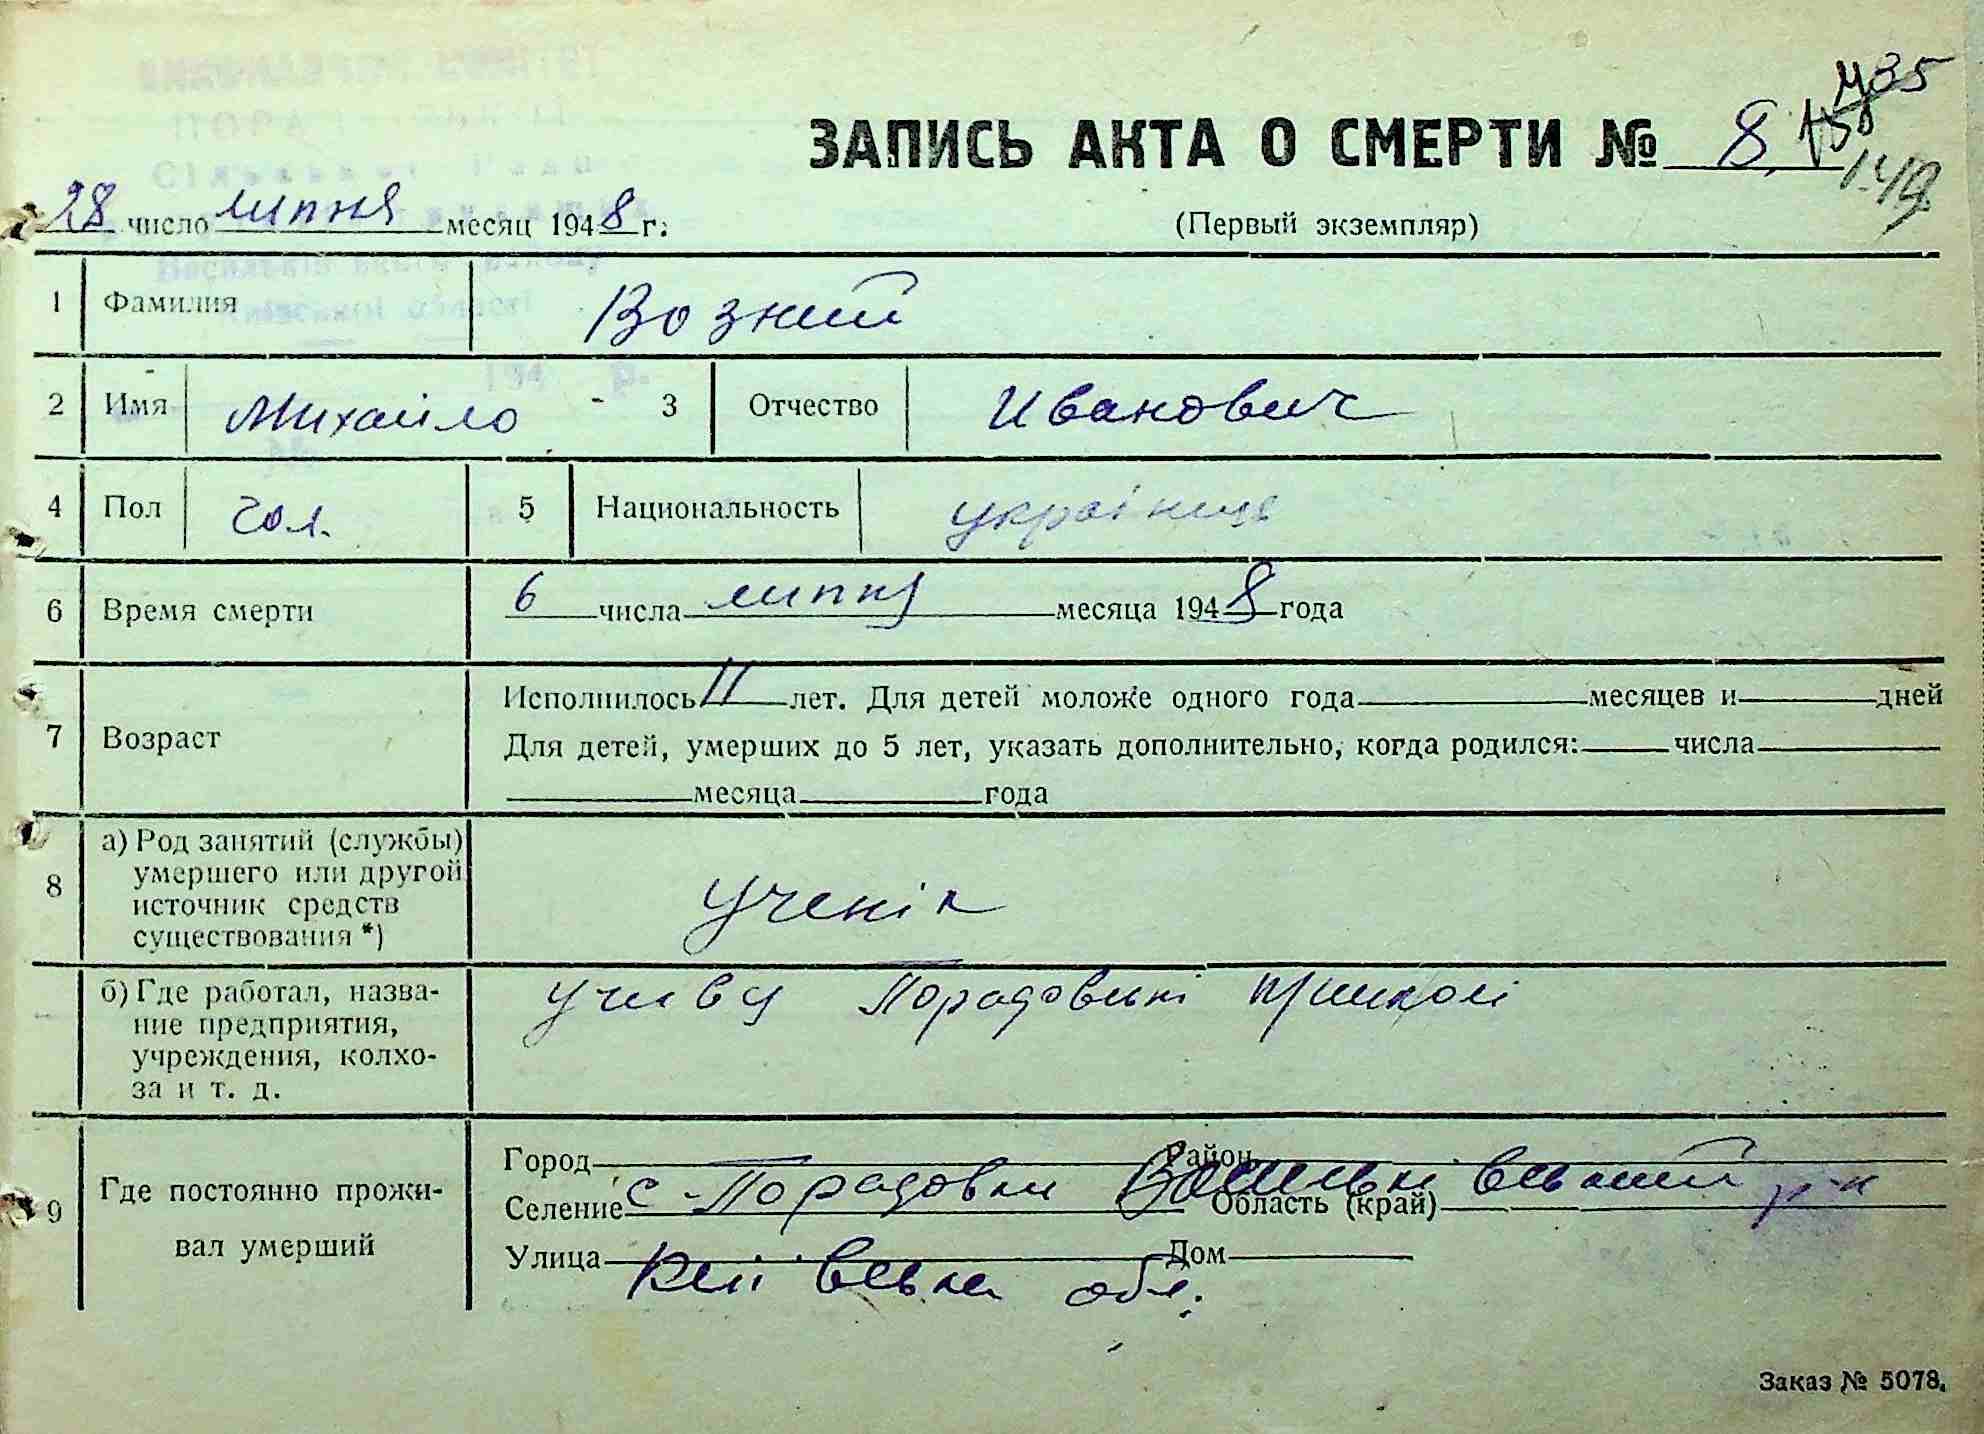 435
ЗАПИСЬ АКТА О СМЕРТИ № 8
149
28 число липня месяц 1948 г.
(Первый экземпляр)
1 Фамилия Возний
2 Имя Михайло - 3 Отчество Иванович
4 Пол чол. 5 Национальность українець
6 Время смерти 6 числа липня месяца 1948 года
7 Возраст Исполнилось 11 лет. Для детей моложе одного года месяцев и дней
Для детей, умерших до 5 лет, указать дополнительно, когда родился: числа
месяца года
8 а) Род занятий (службы) умершего или другой источник средств существования *) ученік
б) Где работал, название предприятия, учреждения, колхоза и т. д. Порадовські
9 Где постоянно проживал умерший
Город Район
Селение с-Порадовки Васильківський р-н Область (край)
Улица Дом
Київська обл.
Заказ № 5078.